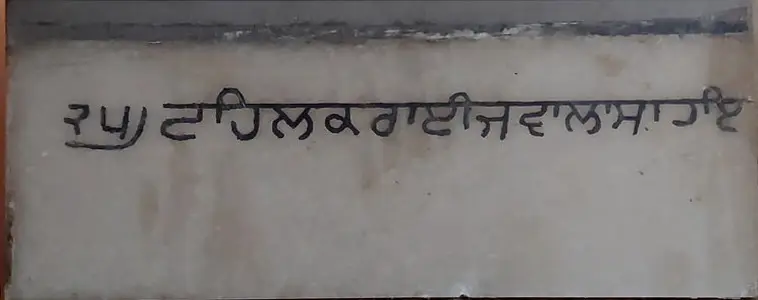 ੨੫) ਟਹਿਲ ਕਰਾਈ ਜਵਾਲਾ ਸਹਾਇ